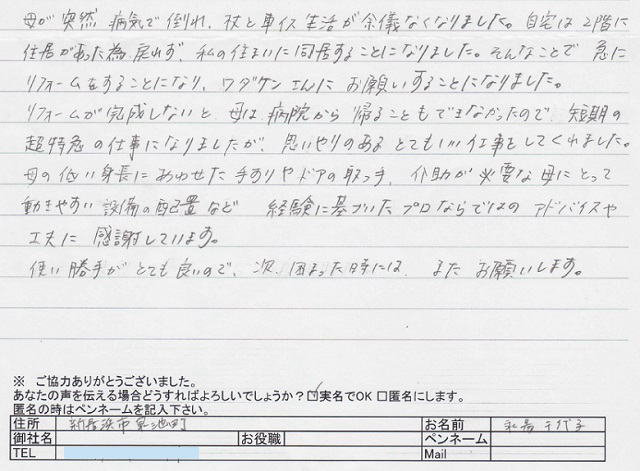 母が突然 病気で倒れ、杖と車イス生活が余儀なくなりました。自宅は2階に
住居があった為戻れず、私の住まいに同居することになりました。そんなことで 急に
リフォームをすることになり、ワダケンさんに お願いすることになりました。
リフォームが完成しないと、母は 病院から 帰ることもできなかったので、短期の
超特急の仕事になりましたが、思いやりのある とてもいい仕事をしてくれました。
母の低い身長にあわせた 手すりやドアの取っ手、介助が必要な母にとって
動きやすい 設備の配置など 経験に基づいた プロならではの アドバイスや
工夫に 感謝しています。
使い勝手がとても良いので、次、困まった時には、また お願いします。
※ ご協力ありがとうございました。
あなたの声を伝える場合どうすればよろしいでしょうか?☑実名でOK □匿名にします。
匿名の時はペンネームを記入下さい。
住所 新居浜市東池町 お名前 千代子
御社名 お役職 ペンネーム
TEL Mail